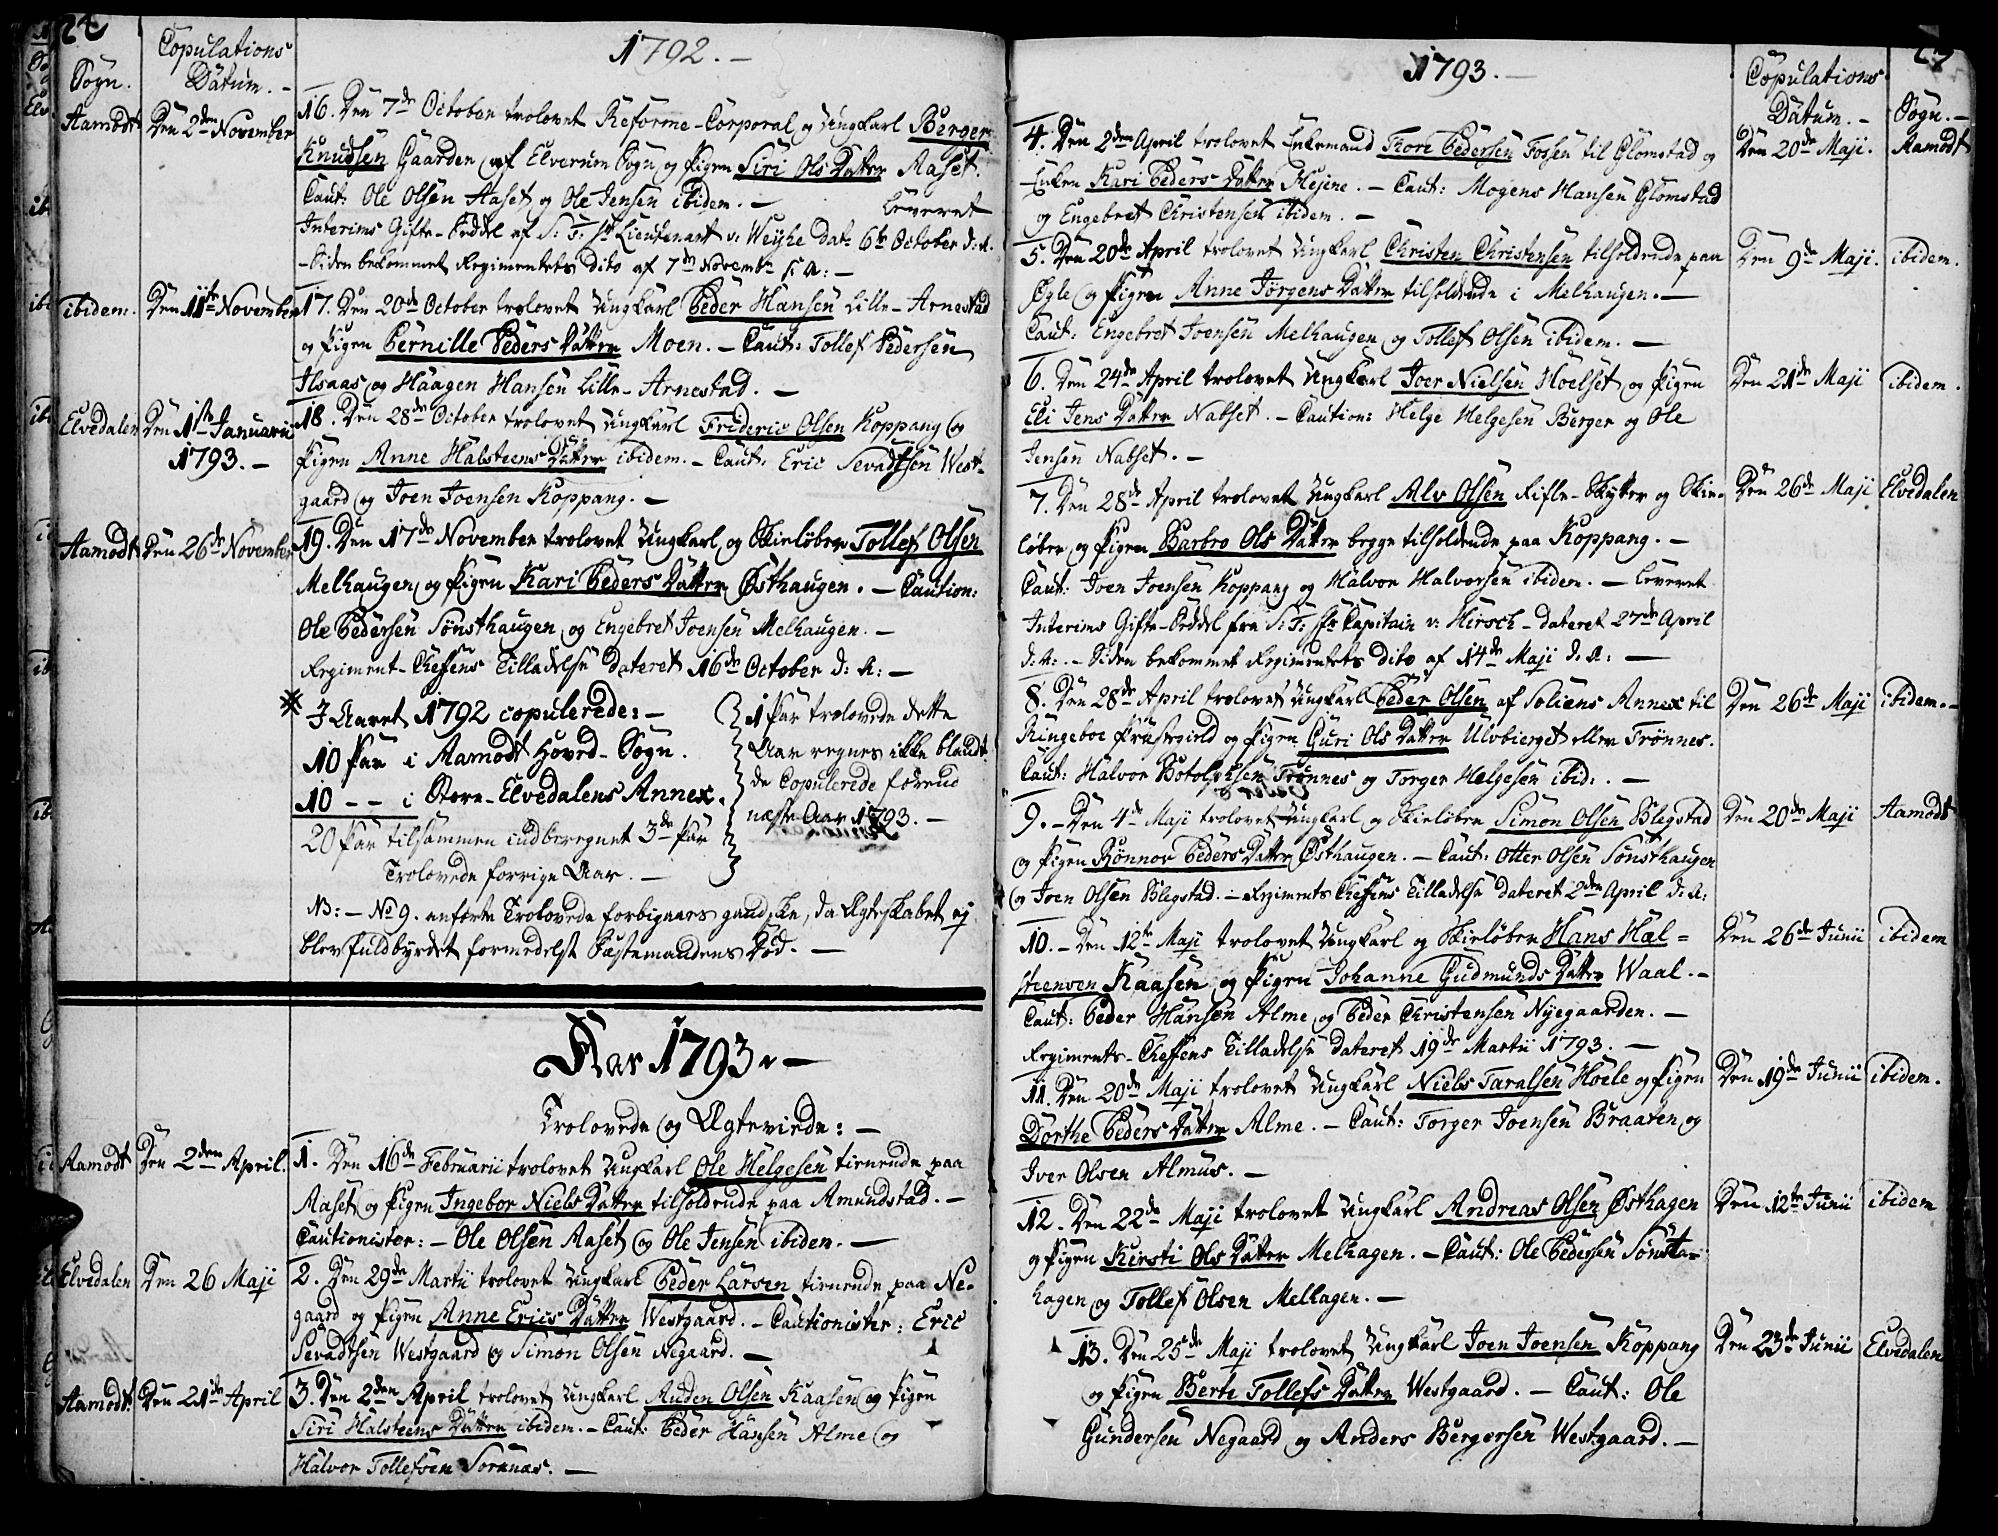 1792. —
Sogn.
Copulations
Datum. —
Aamodt
Den 2den November
16. Den 7de October trolovet Reforme-Corporal og Ungkarl Berger
Knudsen Gaarden af Elverum Sogn og Pigen Siri Ols Datter Aaset.
Caut: Ole Olsen Aaset og Ole Jensen ibidem. — Leveret
Interims Gifte-Seddel af S: T: Hr Lieutenant v: Weyhe dat: 6te October d: A:
– Siden bekommet Regimentets dito af 7de Novembr s: A: —
ibidem.
Den 11te November
17. Den 20de October trolovet Ungkarl Peder Hansen Lille-Arnestad
og Pigen Pernille Peders Datter Moen. — Caut: Tollef Pedersen
Ilsaas og Haagen Hansen Lille-Arnestad. —
Elvedalen
Den 1ste Januarii
1793. —
18. Den 28de October trolovet Ungkarl Frideric Olsen Koppang og
Pigen Anne Halsteens Datter ibidem. — Caut: Eric Sevadtsen West-
gaard og Joen Joensen Koppang. —
Aamodt
Den 26de November
19. Den 17de November trolovet Ungkarl og Skieløber Tollef Olsen
Melhaugen og Pigen Kari Peders Datter Østhaugen. — Caution:
Ole Pedersen Sønsthaugen og Engebret Joensen Melhaugen. —
Regiment-Cheffens Tilladelse dateret 16de October d: A: —
I Aaret 1792 copulerede: —
10 Par i Aamodt Hoved-Sogn.
10 – – i Store-Elvedalens Annex.
20 Par tilsammen indberegnet 3de Par
Trolovede forrige Aar. —
1 Par trolovede dette
Aar regnes ikke blandt
de Copulerede førend
næste Aar 1793. —
NB: — No 9. anførte Trolovede forbigaaes gandske, da Ægteskabet ej
blev fuldbyrdet formedelst Fæstemandens Død. —
Aar 1793. —
Trolovede og Ægteviede: —
Aamodt
Den 2den April.
1. Den 16de Februarii trolovet Ungkarl Ole Helgesen tienende paa
Aaset og Pigen Ingebor Niels Datter tilholdende paa Amundstad. —
Cautionister: — Ole Olsen Aaset og Ole Jensen ibidem. —
Elvedalen
Den 26 Maji
2. Den 29de Martii trolovet Ungkarl Peder Larsen tienende paa Ne-
gaard og Pigen Anne Erics Datter Westgaard. — Cautionister: Eric
Sevadtsen Westgaard og Simon Olsen Negaard. —
Aamodt.
Den 21de April
3. Den 2den April trolovet Ungkarl Auden Olsen Kaasen og Pigen
Siri Halsteens Datter ibidem. — Caut: Peder Hansen Alme og
Halvor Tollefsen Sorknæs. —
1793. —
Copulations
Datum. —
Sogn. —
4. Den 2den April trolovet Enkemand Thore Pedersen Fossen til Glomstad og
Enken Kari Peders Datter Flejine. — Caut: Mogens Hansen Glomstad
og Engebret Christensen ibidem. —
Den 20de Maji.
Aamodt
5. Den 20de April trolovet Ungkarl Christen Christensen tilholdende paa
Øgle og Pigen Anne Jørgens Datter tilholdende i Melhaugen. —
Caut: Engebret Joensen Melhaugen og Tollef Olsen ibidem. —
Den 9de Maji.
ibidem.
6. Den 24de April trolovet Ungkarl Joer Nielsen Hoelset og Pigen
Eli Jens Datter Nabset. — Caution: Helge Helgesen Berger og Ole
Jensen Nabset. —
Den 21de Maji
ibidem.
7. Den 28de April trolovet Ungkarl Alv Olsen Rifle-Skytter og Skie-
løber og Pigen Barbro Ols Datter begge tilholdende paa Koppang. —
Caut: Joen Joensen Koppang og Halvor Halvorsen ibidem. — Leveret
Interims Gifte-Seddel fra S: T: Hr Capitain v: Hirsch – dateret 27de April
d: A: – Siden bekommet Regimentets dito af 14de Maji d: A: —
Den 26de Maji
Elvedalen
8. Den 28de April trolovet Ungkarl Peder Olsen af Soliens Annex til
Ringeboe Præstegield og Pigen Guri Ols Datter Ulvbierget eller Trønnes.
Caut: Halvor Botolphsen Trønnes og Torger Helgesen ibid: —
Den 26de Maji
ibidem. —
9. — Den 4de Maji trolovet Ungkarl og Skieløber Simon Olsen Blegstad
og Pigen Rønnor Peders Datter Østhaugen. — Caut: Otter Olsen Sønsthaugen
og Joen Olsen Blegstad. — Regiments Cheffens Tilladelse dateret 2den April d: A:
Den 20de Maji
Aamodt
10. — Den 12te Maji trolovet Ungkarl og Skieløber Hans Hal-
steensen Kaasen og Pigen Johanne Gudmunds Datter Waal. —
Caut: Peder Hansen Alme og Peder Christensen Nyegaarden. —
Regiments-Cheffens Tilladelse dateret 19de Martii 1793. —
Den 26de Junii
ibidem
11. Den 20de Maji trolovet Ungkarl Niels Taralsen Hoele og Pigen
Dorthe Peders Datter Alme. — Caut: Torger Joensen Braaten og
Iver Olsen Almus. —
Den 19de Junii
ibidem.
12. Den 22de Maji trolovet Ungkarl Andreas Olsen Østhagen
og Pigen Kirsti Ols Datter Melhagen. — Caut: Ole Pedersen Sønst-
hagen og Tollef Olsen Melhagen. —
Den 12te Junii
ibidem
13. Den 25de Maji trolovet Ungkarl Joen Joensen Koppang
og Pigen Berte Tollefs Datter Westgaard. — Caut: Ole
Gundersen Negaard og Anders Bergersen Westgaard. —
Den 23de Junii
Elvedalen